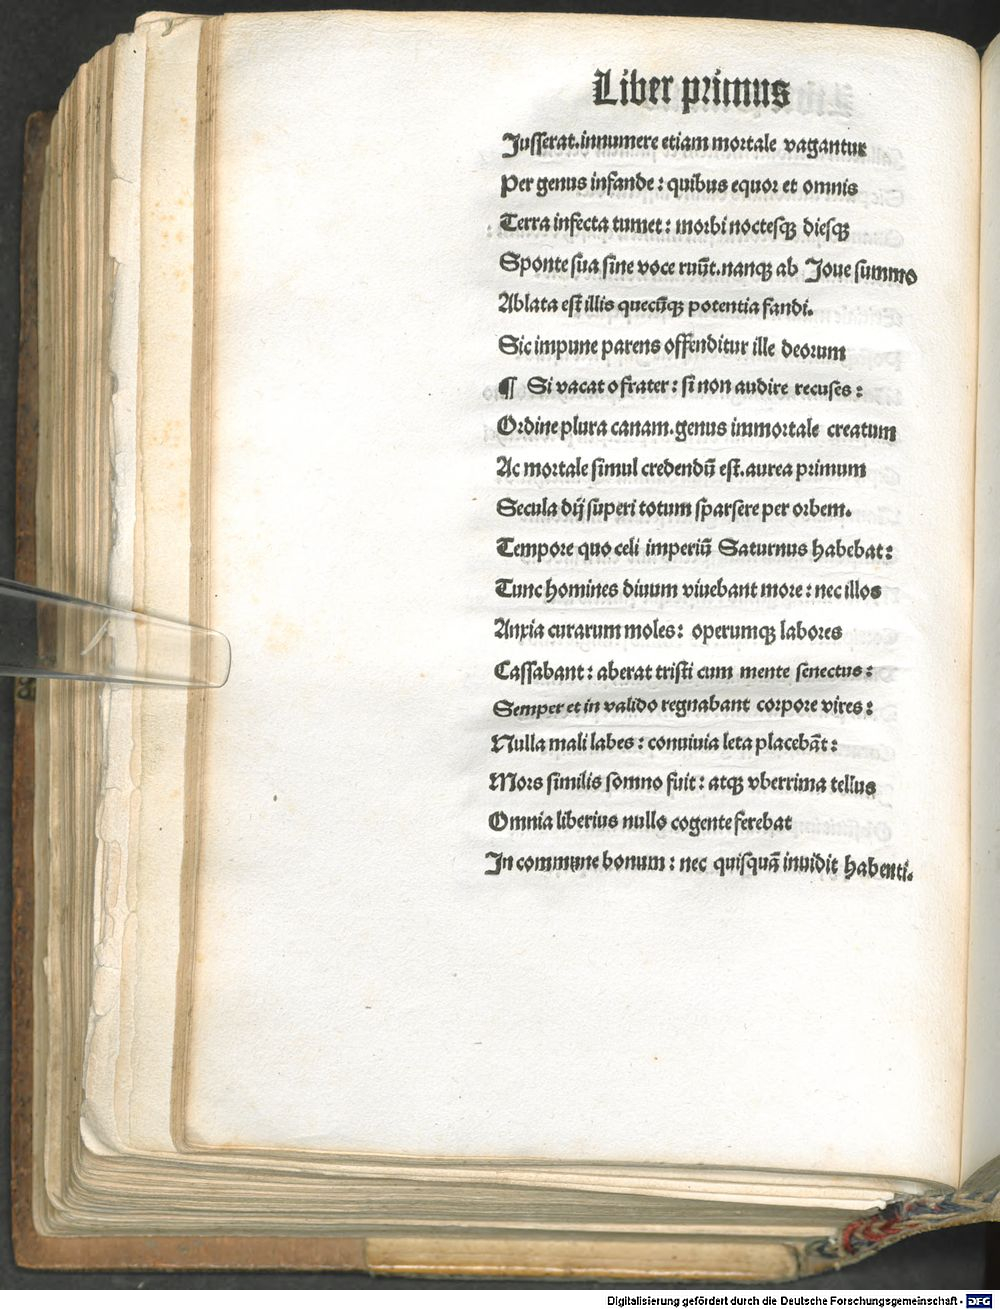 Liber primus
Jusserat.innumere etiam mortale vagantur
Per genus infande: quibus equor et omnis
Terra infecta tumet: morbi noctesqꝫ diesqꝫ
Sponte sua sine voce ruūt.nanqꝫ ab Joue summo
Ablata est illis quecūqꝫ potentia fandi.
Sic impune parens offenditur ille deorum
¶ Si vacat o frater: si non audire recuses:
Ordine plura canam.genus immortale creatum
Ac mortale simul credendū est.aurea primum
Secula dij superi totum sparsere per orbem.
Tempore quo celi imperiū Saturnus habebat:
Tunc homines diuum viuebant more: nec illos
Anxia curarum moles: operumqꝫ labores
Cassabant: aberat tristi cum mente senectus:
Semper et in valido regnabant corpore vires:
Nulla mali labes: conuiuia leta placebāt:
Mors similis somno fuit: atqꝫ vberrima tellus
Omnia liberius nullo cogente ferebat
In commune bonum: nec quisquā inuidit habenti.
Digitalisierung gefördert durch die Deutsche Forschungsgemeinschaft - DFG